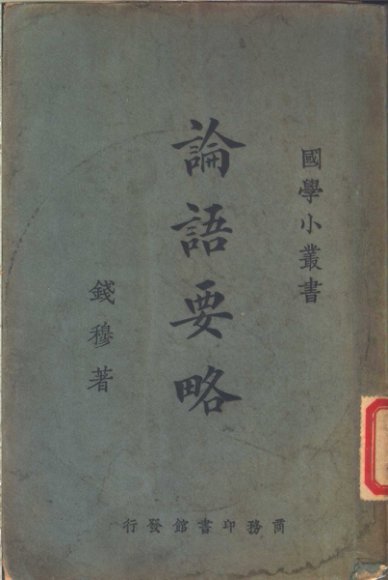 國學小叢書
論語要略
錢穆著
商務印書館發行